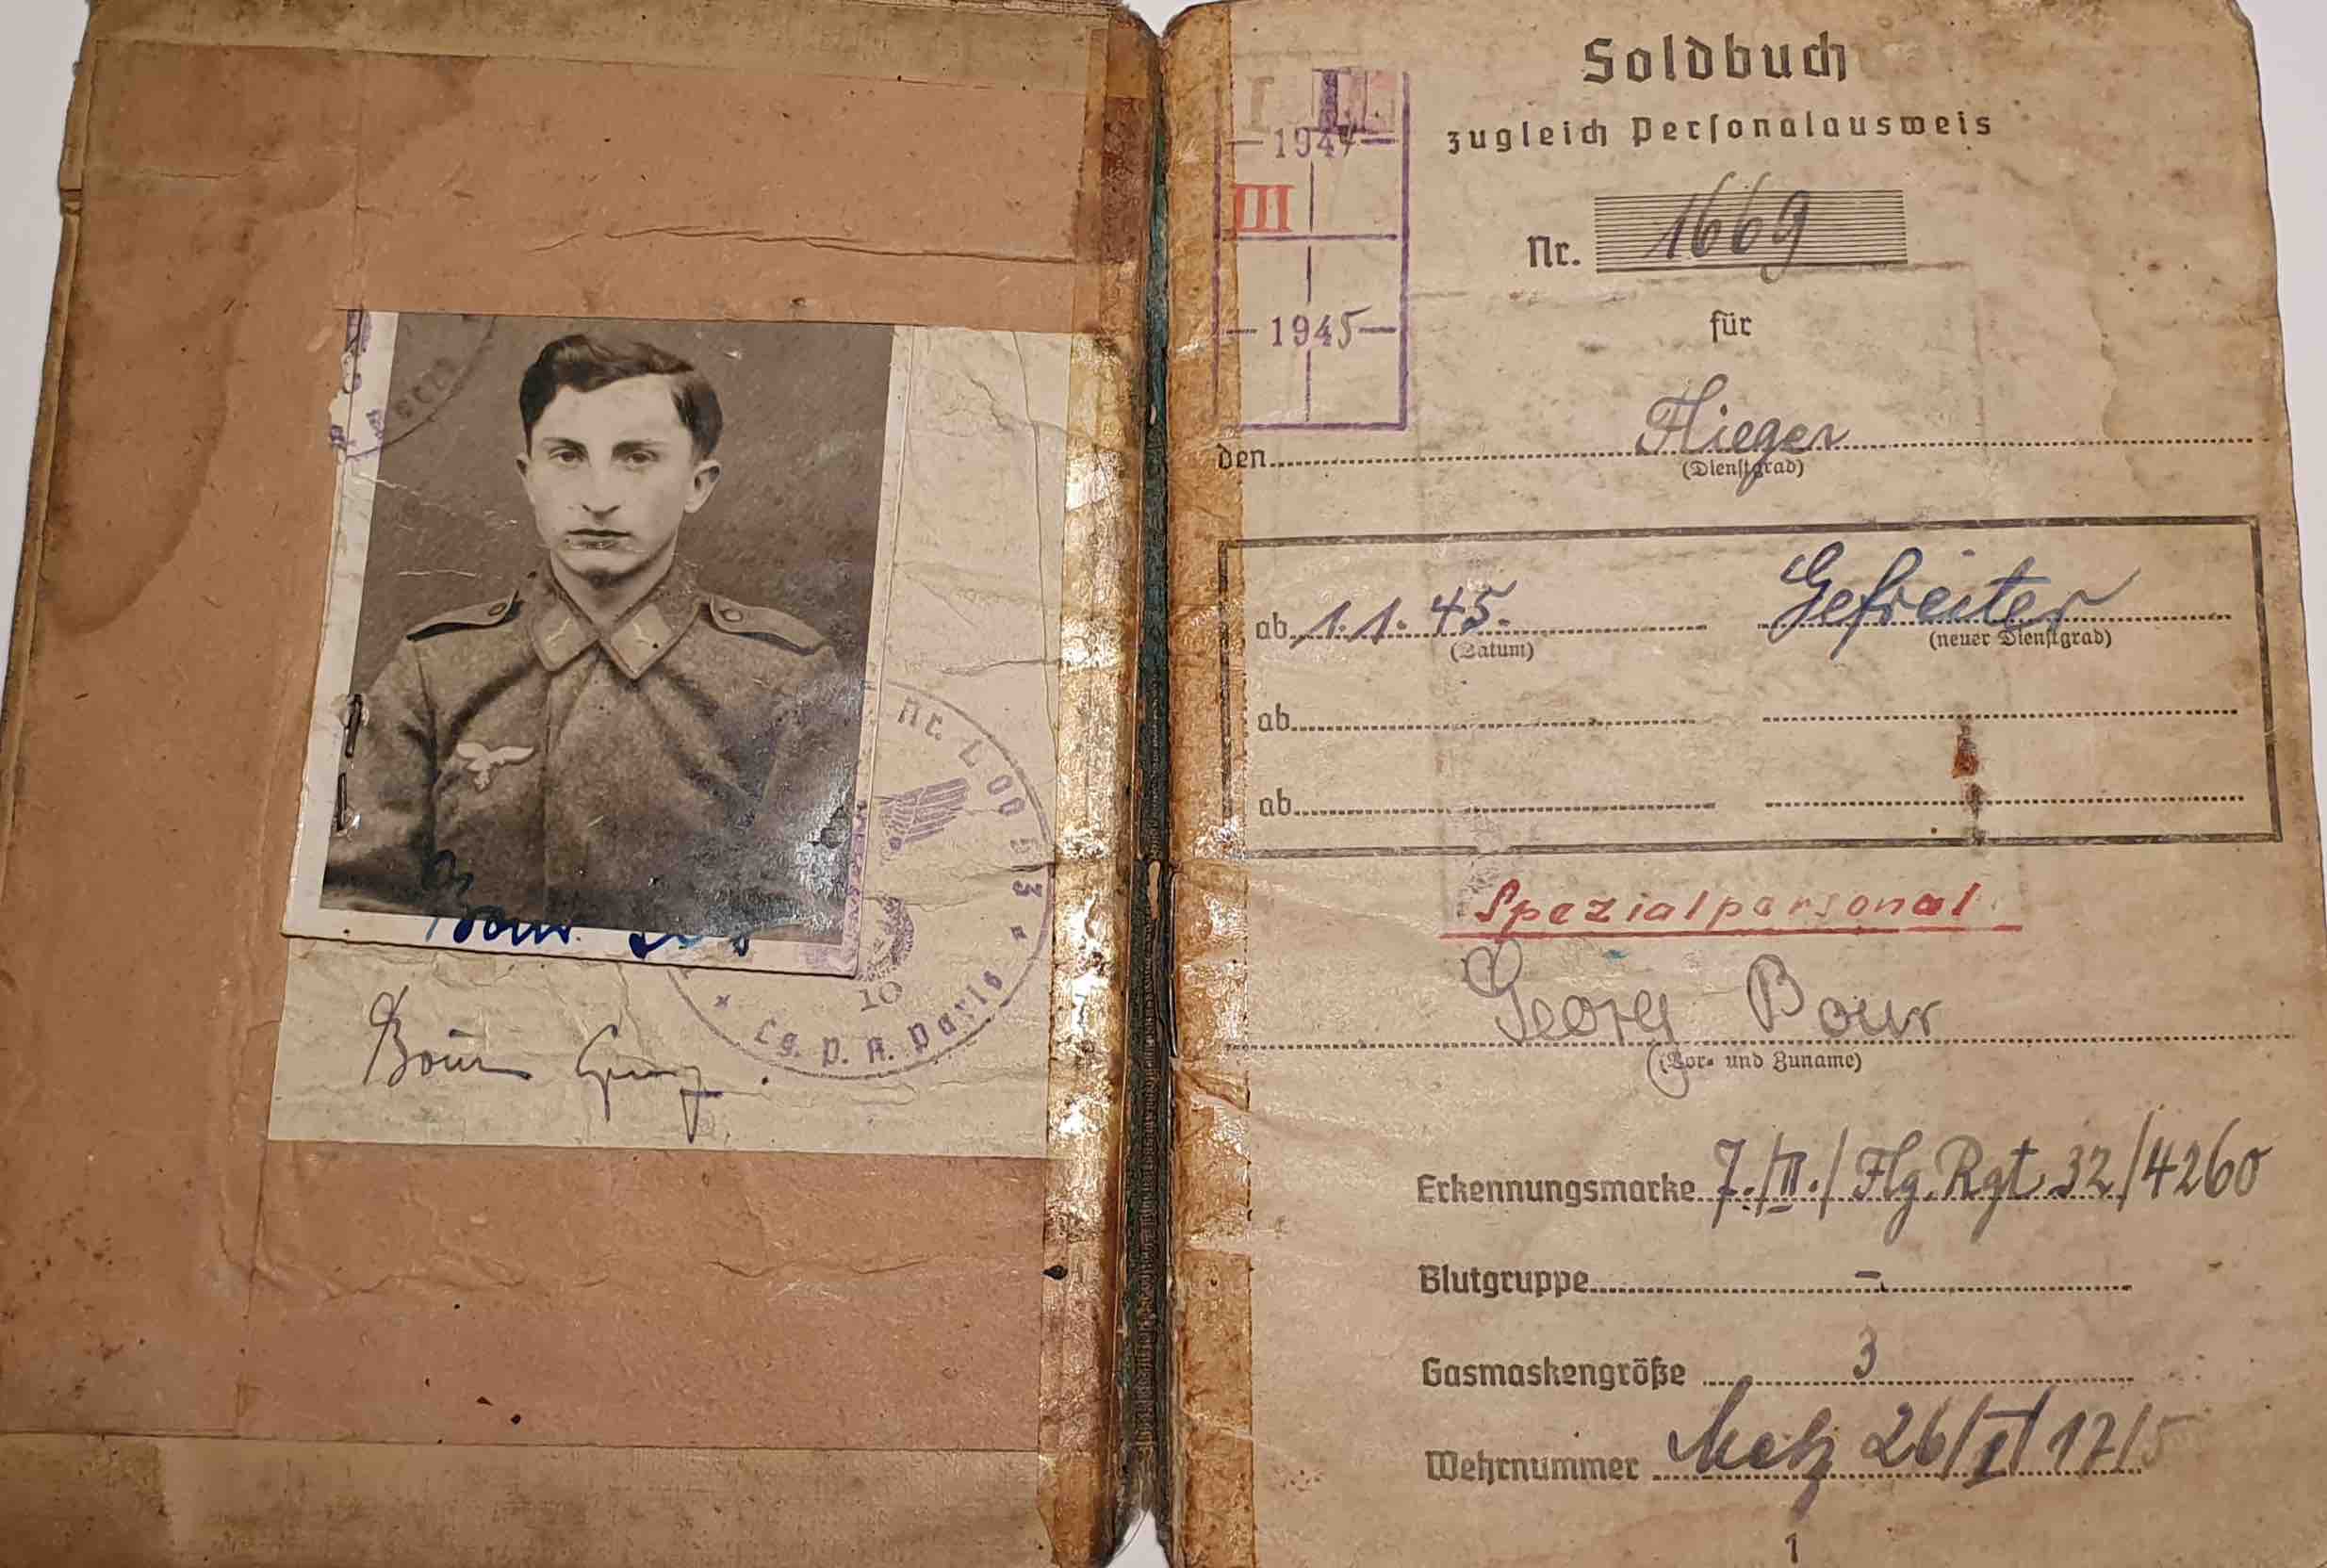 Nr. L 00513
Lg. P. A. Paris
10
Bour Georg
Soldbuch
zugleich Personalausweis
I II
1944
III
1945
Nr. 1669
für
den Flieger
(Dienstgrad)
ab 1.1.45. Gefreiter
(Datum) (neuer Dienstgrad)
ab
ab
Spezialpersonal
Georg Bour
(Vor- und Zuname)
Erkennungsmarke 7./II./Flg. Rgt. 32/4260
Blutgruppe -
Gasmaskengröße 3
Wehrnummer Metz 26/I/17/5
1